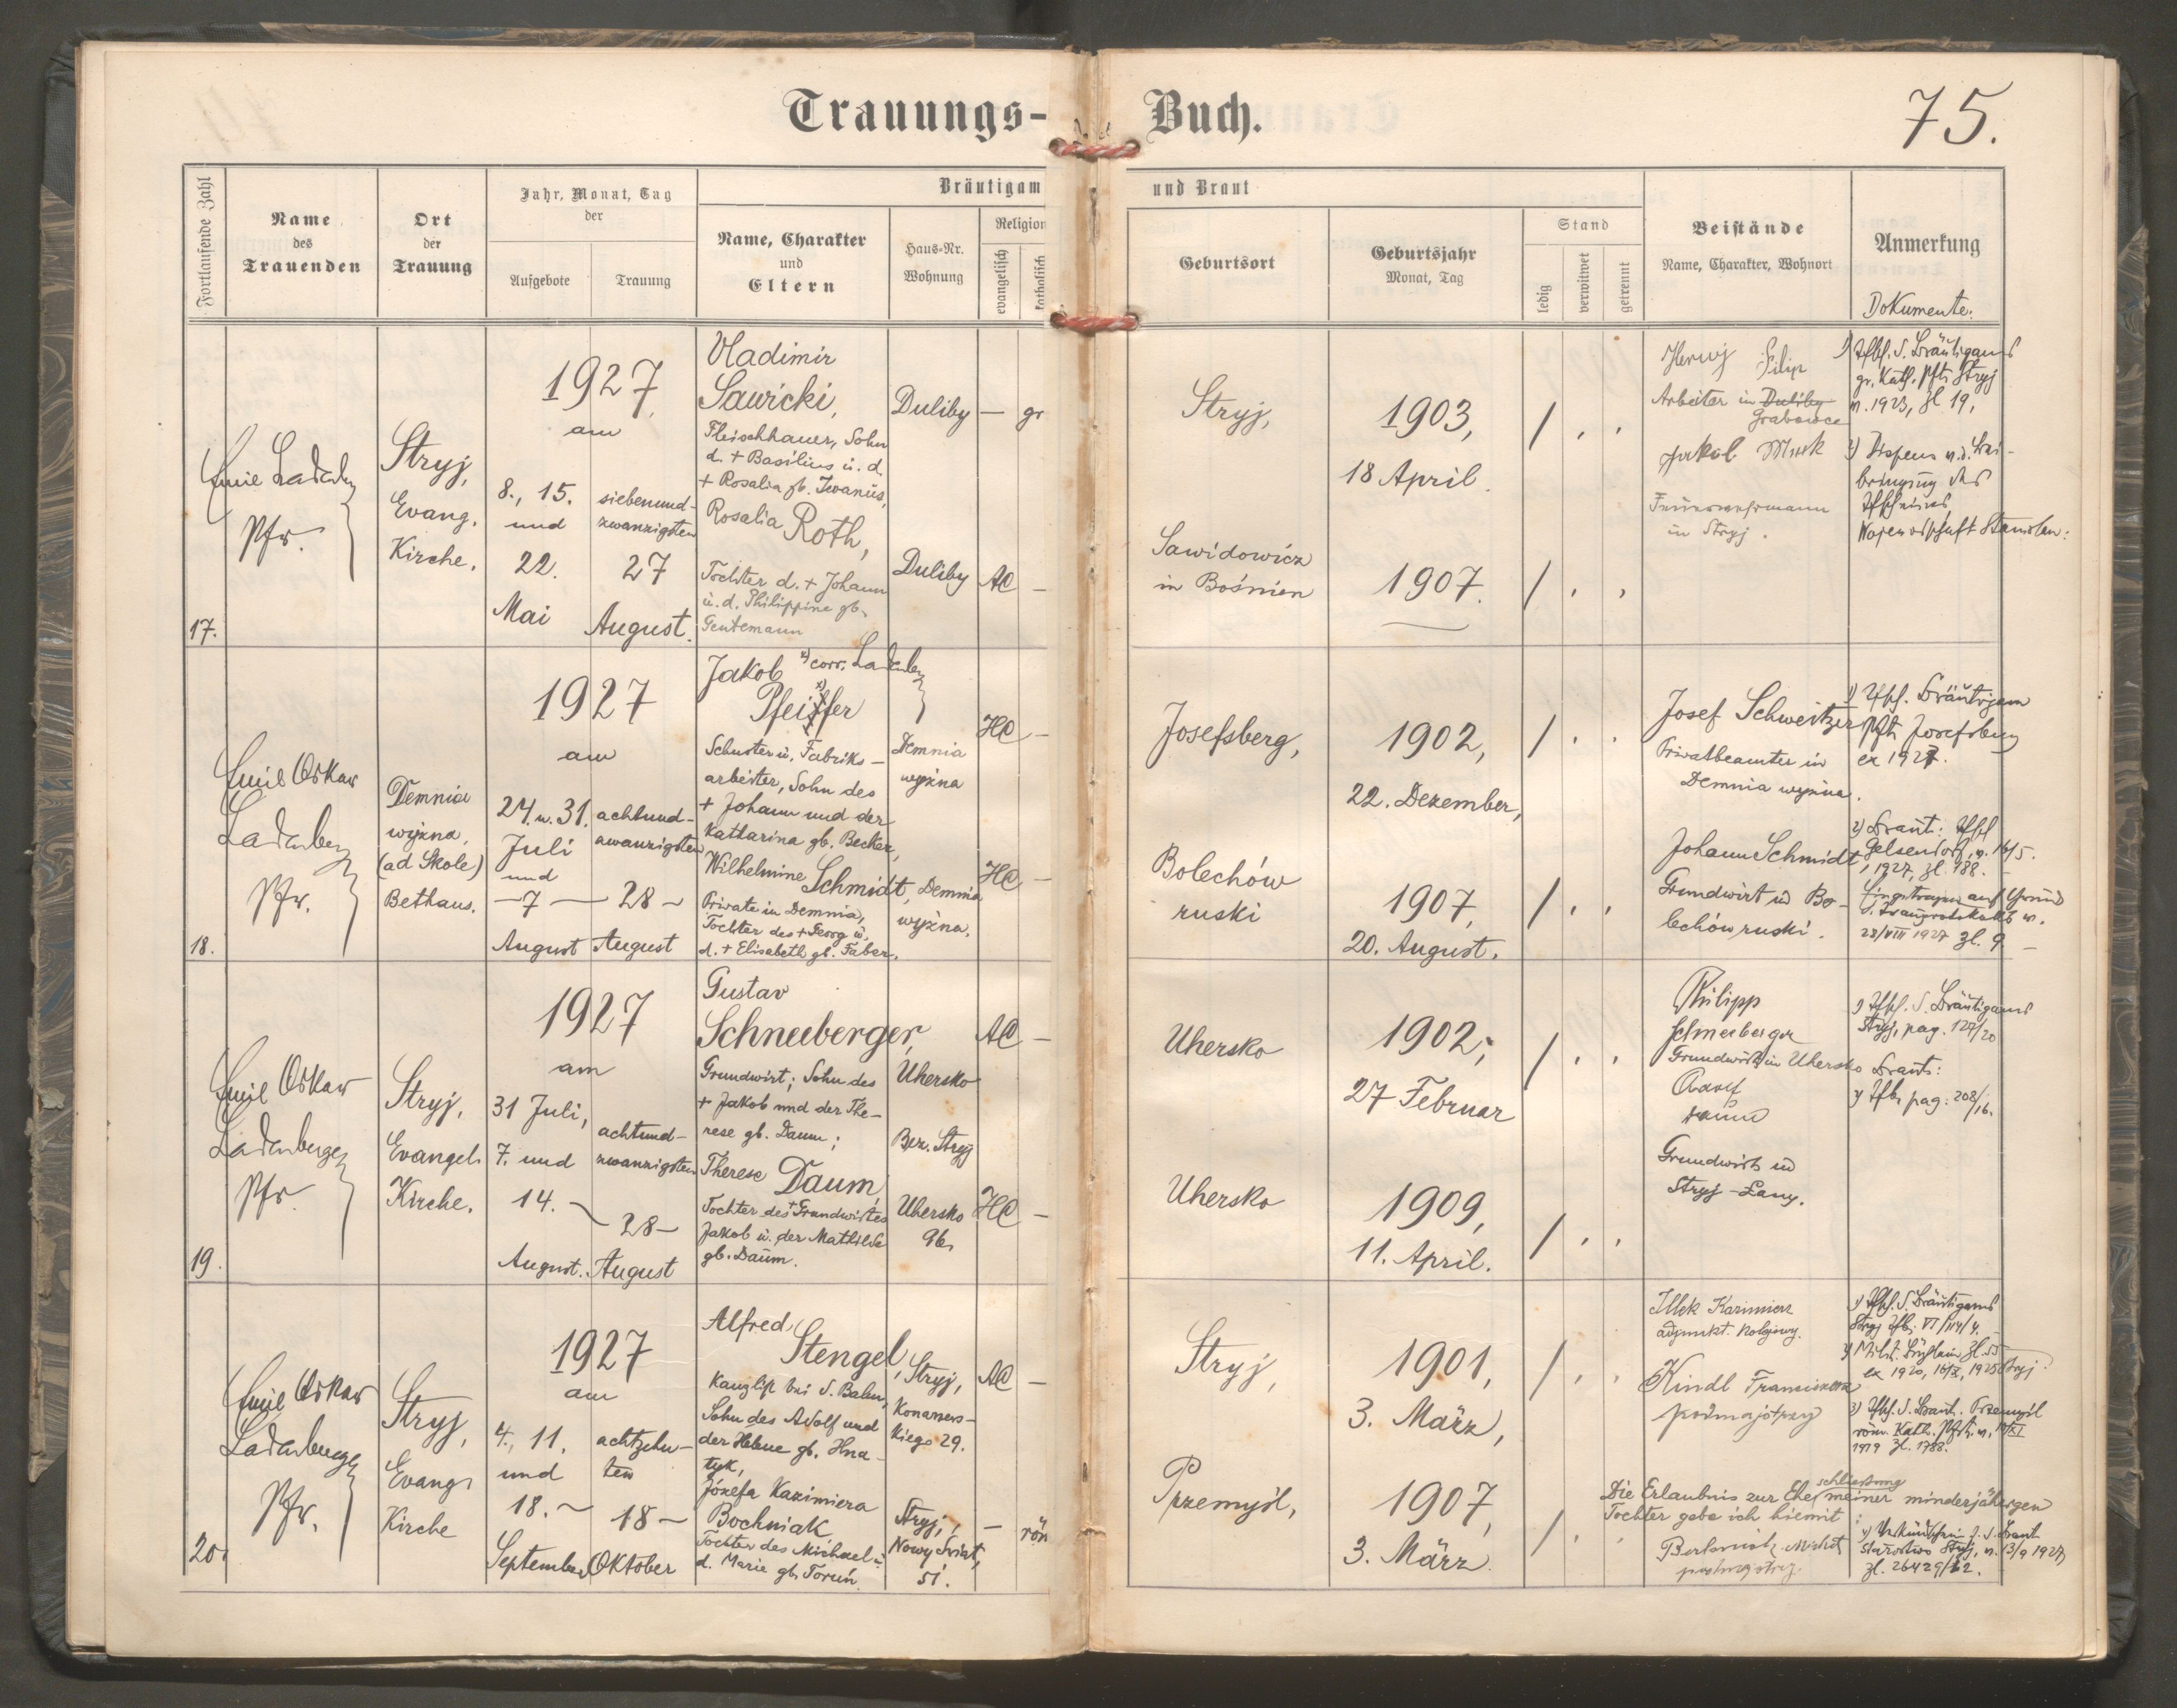 Trauungs-Buch.
75.
Fortlaufende Zahl
Name
des
Trauenden
Ort
der
Trauung
Jahr, Monat, Tag
der
Aufgebote
Trauung
Bräutigam und Braut
Name, Charakter
und
Eltern
Haus-Nr.
Wohnung
Religion
evangelisch
katholisch
Geburtsort
Geburtsjahr
Monat, Tag
Stand
ledig
verwitwet
getrennt
Beistände
Name, Charakter, Wohnort
Anmerkung
Dokumente:
17.
Pfr.
Stryj,
Evang.
Kirche.
1927,
am
8., 15.
und
22.
Mai
siebenund-
zwanzigsten
27
August.
Vladimir
Sawicki,
Fleischhauer, Sohn
d. + Basilius u. d.
+ Rosalia gb. Iwanus,
Rosalia Roth,
Tochter d. + Johann
u. d. Philippine gb.
Gentemann
Duliby — gr
Duliby AC —
Stryj,
1903,
18 April.
Sawidowicz
in Bosnien
1907.
Filip
Arbeiter in Duliby
Grabowce
Jakob
in Stryj.
gr. Kath. Pft. Stryj
v. 1923, Zl 19,
18.
Emil Oskar
Ladenberger
Pfr.
Demnia
wyżna,
(ad Skole)
Bethaus.
1927
am
24. u. 31.
Juli
und
— 7 —
August
achtund-
zwanzigsten
28 —
August
Jakob x) corr. Ladenberger
Pfeiffer
Schuster u. Fabriks-
arbeiter, Sohn des
+ Johann und der
Katharina gb. Becker,
Wilhelmine Schmidt,
Private in Demnia,
Tochter des + Georg u.
d. + Elisabeth gb. Faber.
Demnia
wyżna
HC —
Demnia
wyżna.
HC —
Josefsberg,
1902,
22. Dezember,
Bolechów
ruski
1907,
20. August.
Josef Schweitzer
Privatbeamter in
Demnia wyżna.
Johann Schmidt,
Grundwirt in Bo-
lechów ruski.
Pft. Josefsberg
ex 1927.
Gelsendorf, v. 16/5.
1927, Zl. 188.
28/VIII 1927 Zl. 9. —
19.
Emil Oskar
Ladenberger
Pfr.
Stryj,
Evangel.
Kirche.
1927
am
31 Juli,
7. und
14. —
August.
achtund-
zwanzigsten
28 —
August
Gustav
Schneeberger,
Grundwirt; Sohn des
+ Jakob und der The-
rese gb. Daum;
Therese Daum,
Tochter des + Grundwirtes
Jakob u. der Mathilde
gb. Daum.
AC —
Uhersko
Bez. Stryj
Uhersko
96,
HC —
Uhersko
1902;
27 Februar
Uhersko
1909,
11. April.
Philipp
Schneeberger
Grundwirt in Uhersko
Adolf
Daum
Grundwirt in
Stryj-Lany.
Stryj, pag. 127/20
Braut:
pag. 208/16.
20.
Emil Oskar
Ladenberger
Pfr.
Stryj,
Evang.
Kirche
1927
am
4., 11.
und
18. —
September
achtzehn-
ten
18 —
Oktober
Alfred
Stengel,
Sohn des Adolf und
der Helene gb. Hna-
tyk,
Józefa Kazimiera
Bochniak
Tochter des Michael u.
d. Marie gb. Toruń.
Stryj,
Konarers-
kiego 29.
AC —
Stryj,
Nowy Świat,
51.
— röm
Stryj,
1901,
3. März,
Przemyśl,
1907,
3. März.
Illek Kazimierz
adjunkt. kolejowy.
Kindl Franciszek
podmajstrzy
Die Erlaubnis zur Eheschliessung meiner minderjährigen
Tochter gebe ich hiemit:
1919 Zl. 1788.
Starostwo Stryj, v. 13/9 1927,
Zl. 26429/12.